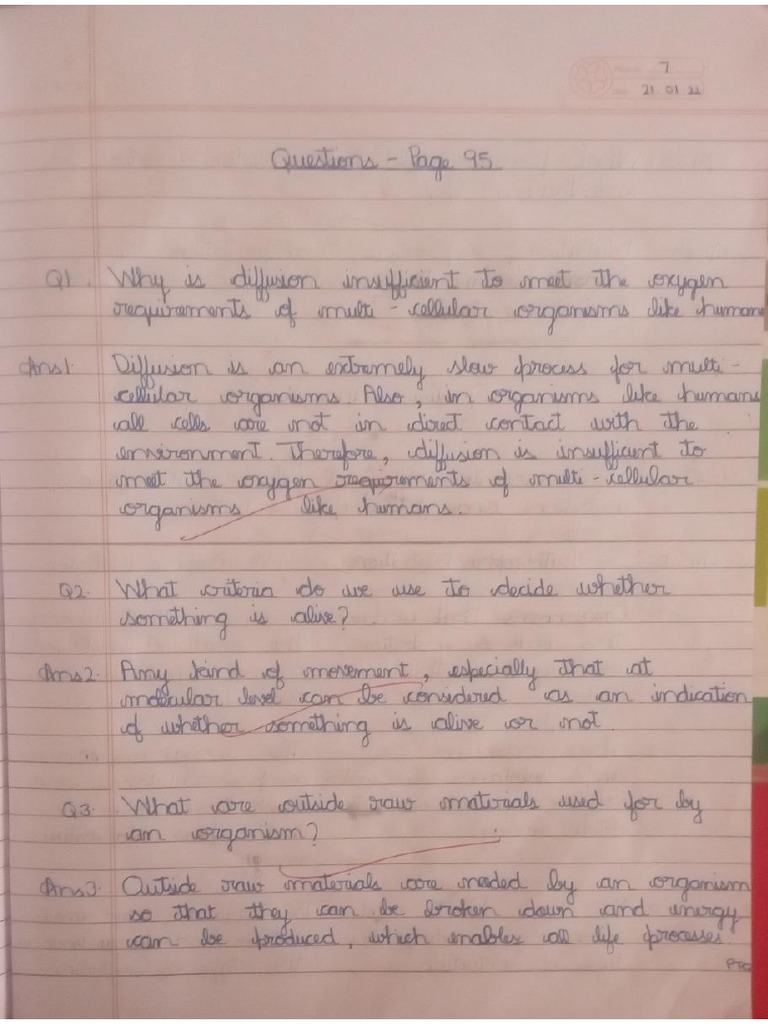 7
21 01 22
Questions - Page 95
Q1. Why is diffusion insufficient to meet the oxygen
requirements of multi-cellular organisms like humans
Ans1. Diffusion is an extremely slow process for multi-
cellular organisms. Also, in organisms like humans
all cells are not in direct contact with the
environment. Therefore, diffusion is insufficient to
meet the oxygen requirements of multi-cellular
organisms like humans.
Q2. What criteria do we use to decide whether
something is alive?
Ans2. Any kind of movement, especially that at
molecular level can be considered as an indication
of whether something is alive or not.
Q3. What are outside raw materials used for by
an organism?
Ans3. Outside raw materials are needed by an organism
so that they can be broken down and energy
can be produced, which enables all life processes
PTO